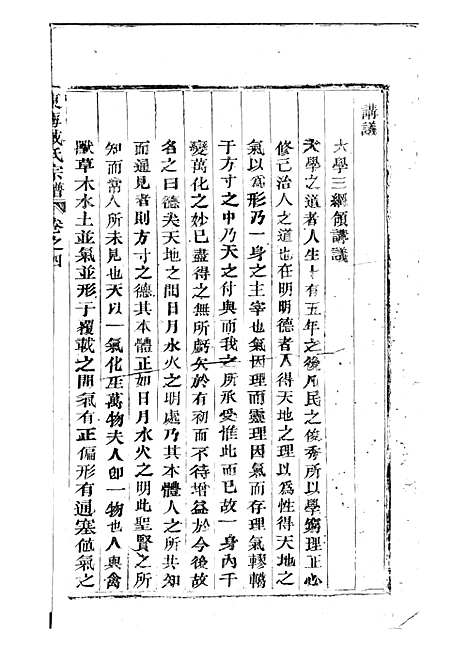 講議
大學三綱領講議
大學之道者人生十有五年之後凡民之俊秀所以學窮理正心
修己治人之道也在明明德者人得天地之理以爲性得天地之
氣以爲形乃一身之主宰也氣因理而靈理因氣而存理氣轇轕
于方寸之中乃天之付與而我之所承受惟此而已故一身內千
變萬化之妙已盡得之無所虧欠於有初而不待增益於今後故
名之曰德夫天地之間日月水火之明處乃其本體人之所共知
而通見者則方寸之德其本體正如日月水火之明此聖賢之所
知而常人所未見也天以一氣化生萬物夫人卽一物也人與禽
獸草木水土並氣並形于覆載之間氣有正偏形有通塞值氣之
東海戴氏宗譜 卷之四